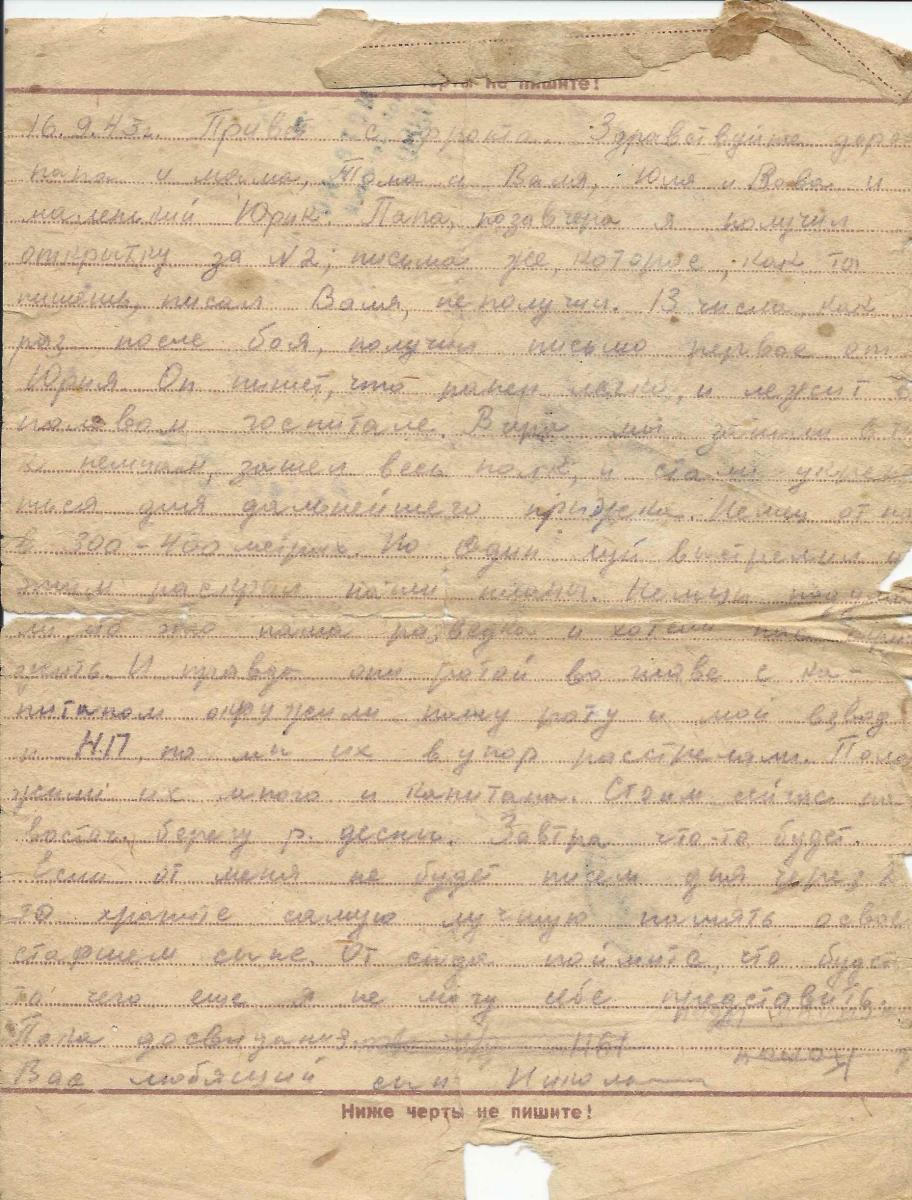 черты не пишите!
16.9.43г. Привет с фронта. Здравствуйте доро
папа и мама, Тома и Валя, Юля и Вова и
маленький Юрик. Папа, позавчера я получил
открытку за №2, письма же, которое, как ты
пишешь, писала Валя, не получил. 13 числа, как
раз после боя, получил письмо первое от
Юрия Он пишет, что ранен легко, и лежит в
полевом госпитале. Вчера мы зашли в
к немцам, зашел весь полк, и стали укреп
ться для дальнейшего прыжка. Немцы от на
в 300-400 метрах. Но один выстрелил и
этим раскрыл наши планы. Немцы подума
ли, что это наша разведка и хотели
жить. И правда они ротой во главе с ка-
питаном окружили нашу роту и мой взвод
и НП, но мы их в упор расстреляли. Поло
жили их много и капитана. Стоим сейчас на
восточ. берегу р. десны. Завтра что-то будет.
Если от меня не будет писем дня через 2
то храните самую лучшую память о свое
старшем сыне. От сюда поймите, что будет
то чего еще я не могу себе представить.
Папа досвидания.
Вас любящий сын Никола
Ниже черты не пишите!